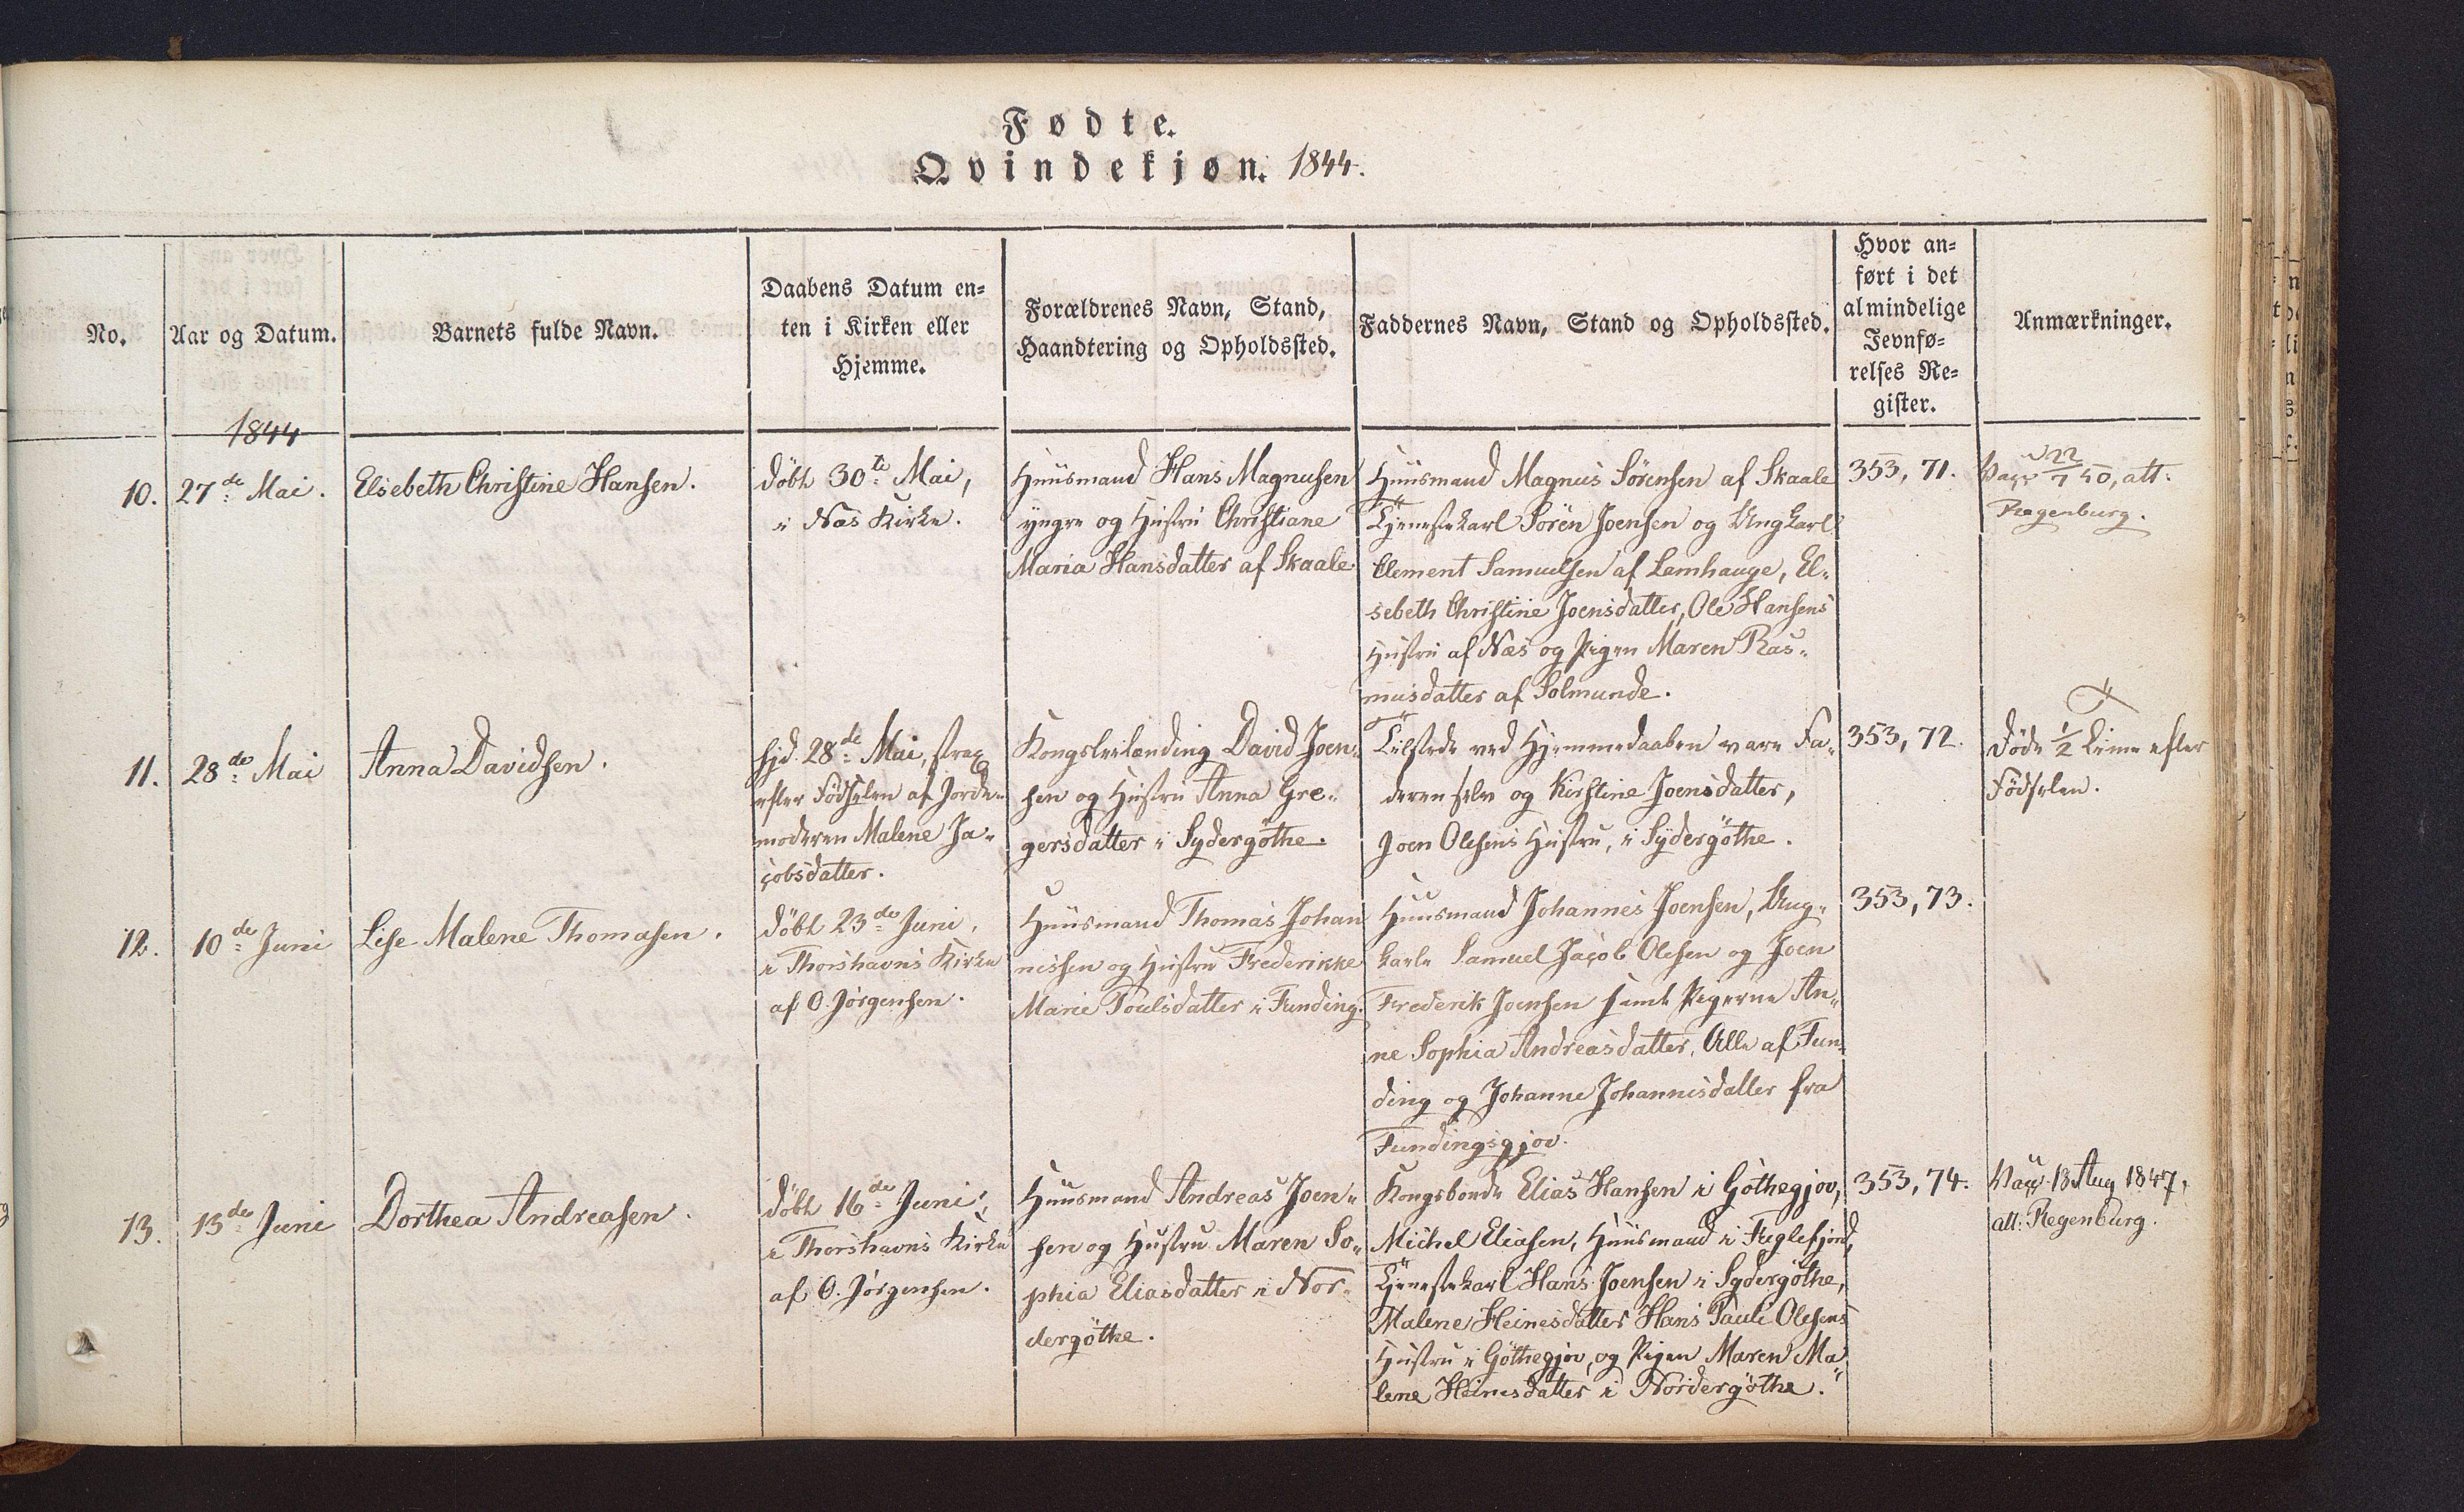 Fødte.
Qvindekjøn. 1844.
No.
Aar og Datum.
Barnets fulde Navn.
Daabens Datum en=
ten i Kirken eller
Hjemme.
Forældrenes Navn, Stand,
Haandtering og Opholdssted.
Faddernes Navn, Stand og Opholdssted.
Hvor an=
ført i det
almindelige
Jevnfø=
relses Re=
gister.
Anmærkninger.
1844
10.
27de Mai.
Elsebeth Christine Hansen.
döbt 30te Mai,
i Næs Kirke.
Huusmand Hans Magnusen
yngre og Hustru Christiane
Maria Hansdatter af Skaale
Huusmand Magnus Sörensen af Skaale
Tjenestekarl Sören Joensen og Ungkarl
Clement Samuelsen af Lamhauge, El-
sebeth Christine Joensdatter, Ole Hansens
Hustru af Næs og Pigen Maren Ras-
musdatter af Solmunde.
353, 71.
Vacc 22/7 50, att.
Regenburg.
11.
28de Mai
Anna Davidsen.
hjd. 28de Mai, strax
efter Födselen af Jorde-
moderen Malene Ja-
cobsdatter.
Kongsleilænding David Joen-
sen og Hustru Anna Gre-
gersdatter i Sydergöthe.
Tilstede ved Hjemmedaaben vare Fa-
deren selv og Kirstine Joensdatter,
Joen Olesens Hustru, i Sydergöthe.
353, 72.
döde 1/2 Time efter
Födselen.
12.
10de Juni
Lise Malene Thomasen.
döbt 23de Juni,
i Thorshavns Kirke
af O. Jörgensen.
Huusmand Thomas Johan
nissen og Hustru Frederikke
Marie Poulsdatter i Funding.
Huusmand Johannes Joensen, Ung-
karle Samuel Jacob Olesen og Joen
Frederik Joensen samt Pigerne An-
ne Sophia Andreasdatter, Alle af Fun-
ding og Johanne Johannisdatter fra
Fundingsgjov.
353, 73.
13.
13de Juni
Dorthea Andreasen.
döbt 16de Juni,
i Thorshavns Kirke
af O. Jörgensen.
Huusmand Andreas Joen-
sen og Hustru Maren So-
phia Eliasdatter i Nor-
dergöthe.
Kongsbonde Elias Hansen i Göthegjov,
Michel Eliasen, Huusmand i Fuglefjord,
Tjenestekarl Hans Joensen i Sydergöthe,
Malene Heinesdatter Hans Pauli Olesens
Hustru i Göthegjov, og Pigen Maren Ma-
lene Heinesdatter i Nordergöthe.
353, 74.
Vacc. 18 Aug 1847,
att: Regenburg.